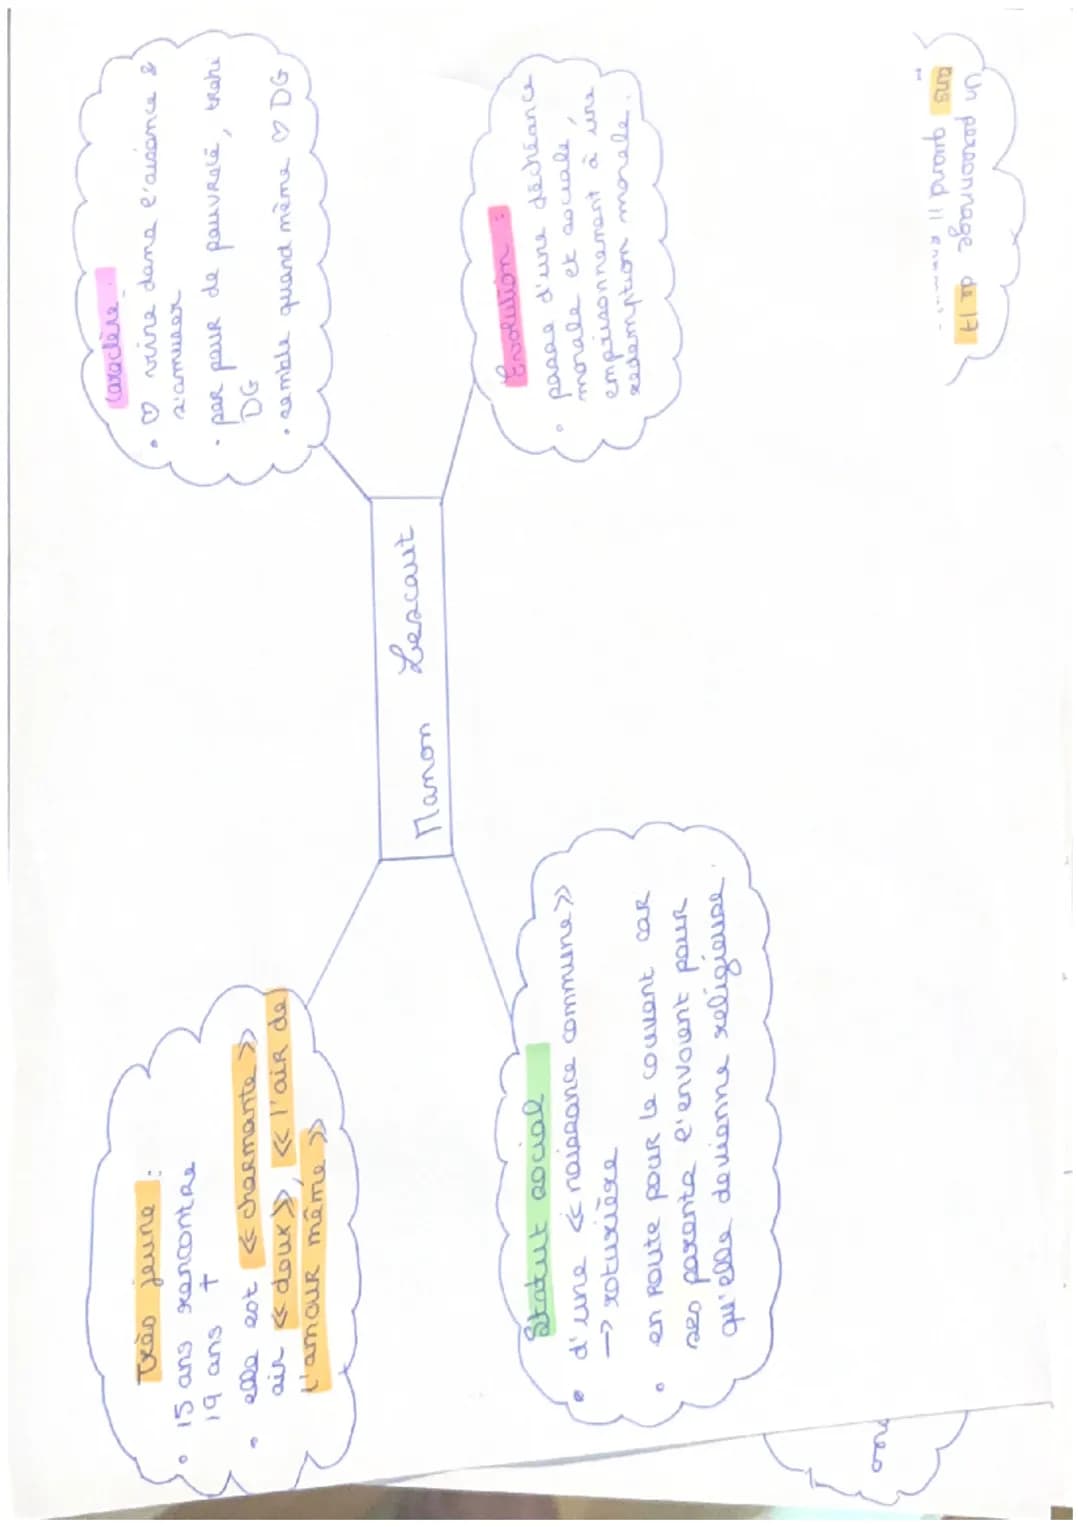 Manon Lescaut
Très jeune :
• 15 ans rencontre
19 ans †
• elle est << charmante >>
air << doux >>, << l'air de
l'amour même >>
Caractère :
• ♡ vivre dans l'aisance &
s'amuser
• par peur de pauvreté, trahi
DG
• semble quand même ♡ DG
Statut social
• d'une << naissance commune >>
→ roturière
• en route pour le couvent car
ses parents l'envoient pour
qu'elle devienne religieuse.
Évolution :
• passe d'une déchéance
morale et sociale,
emprisonnement à une
rédemption morale.
Un personnage de 17
ans quand il